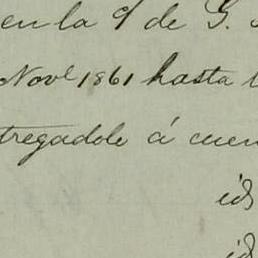 en la c/ de G.
Novl 1861 hasta
tregadole á cuen
id
id